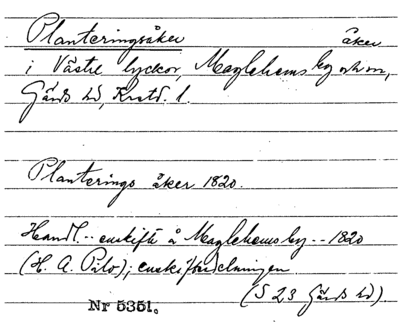 Planteringsåker åker
i Västre lyckor, Maglehems by och sn,
Gärds hd, Krstd. l.
Planterings åker 1820.
Handl. .. enskifte å Maglehems by .. 1820
(H. A. Pilo); enskiftesdelningen
(S 23 Gärds hd)
Nr 5351.